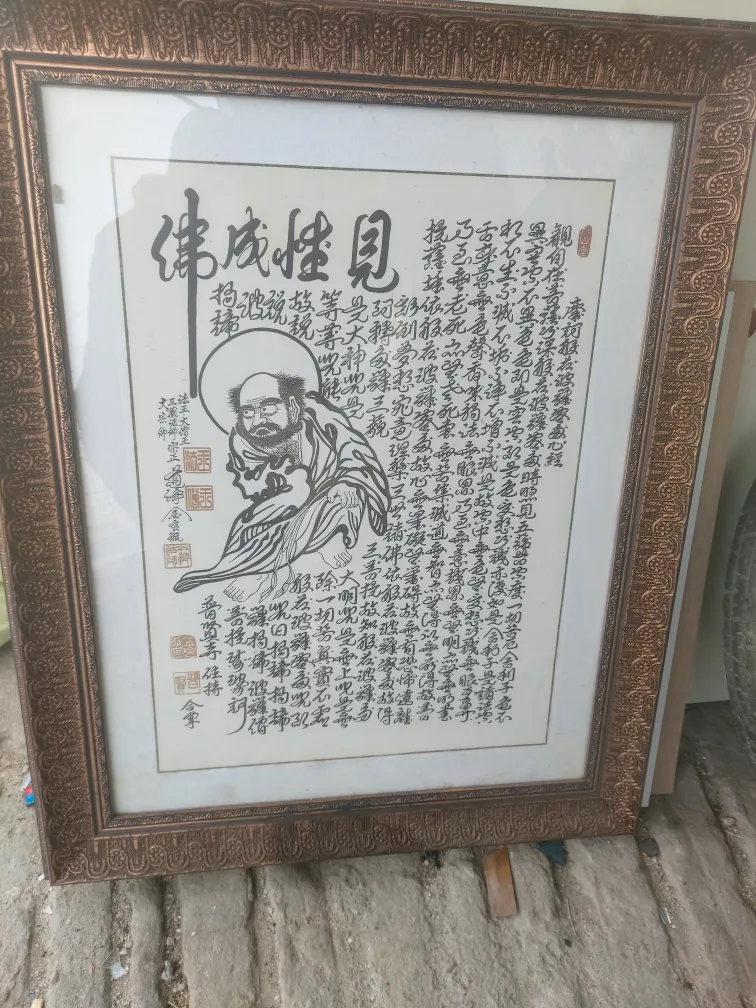 見性成佛
摩訶般若波羅蜜多心經
觀自在菩薩行深般若波羅蜜多時照見五蘊皆空度一切苦厄舍利子色不
異空空不異色色即是空空即是色受想行識亦復如是舍利子是諸法空
相不生不滅不垢不淨不增不減是故空中無色無受想行識無眼耳鼻
舌身意無色聲香味觸法無眼界乃至無意識界無無明亦無無明盡
乃至無老死亦無老死盡無苦集滅道無智亦無得以無所得故菩
提薩埵依般若波羅蜜多故心無罣礙無罣礙故無有恐怖遠離
顛倒夢想究竟涅槃三世諸佛依般若波羅蜜多故得
阿耨多羅三藐
三菩提故知般若波羅蜜多
是大神咒是
大明咒是無上咒是無
等等咒能
除一切苦真實不虛
故說
般若波羅蜜多咒即
說
咒曰揭諦揭諦
波
羅揭諦波羅僧
揭諦
菩提薩婆訶
法王大僧正
三藏法師 宗正
大宗師
普賢寺 住持 合掌